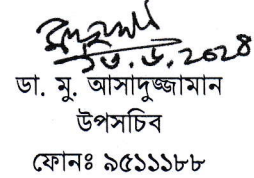 ডা. মু. আসাদুজ্জামান
উপসচিব
ফোনঃ ৯৫১১১৮৮